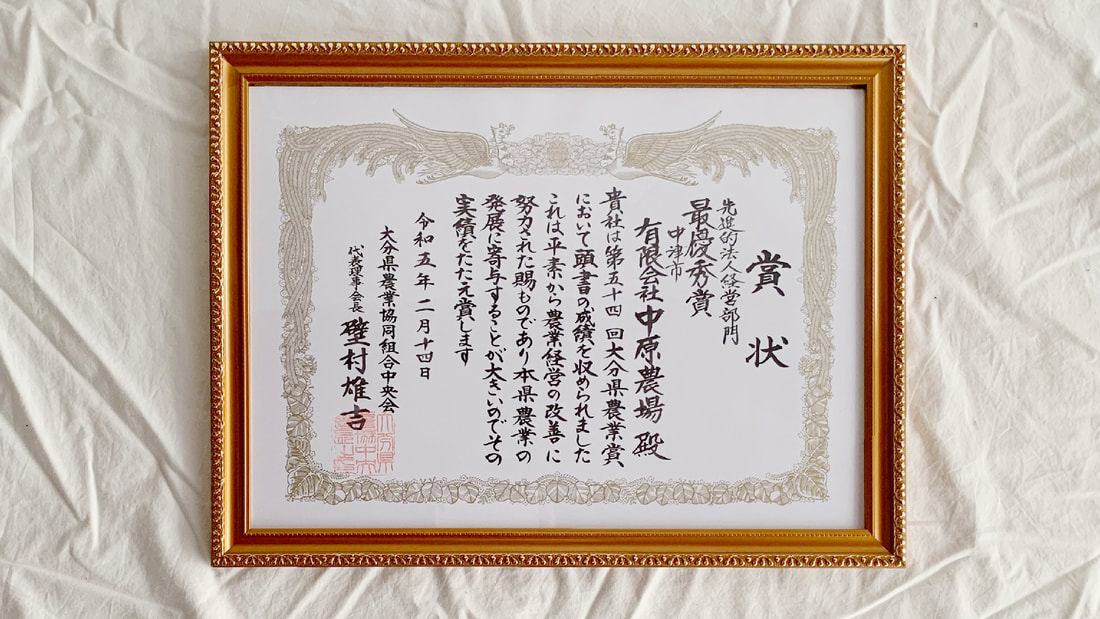 賞状
先進的法人経営部門
最優秀賞
中津市
有限会社中原農場 殿
貴社は第五十四回大分県農業賞
において頭書の成績を収められました
これは平素から農業経営の改善に
努力された賜ものであり本県農業の
発展に寄与することが大きいのでその
実績をたたえ賞します
令和五年二月十四日
大分県農業協同組合中央会
代表理事会長 壁村雄吉